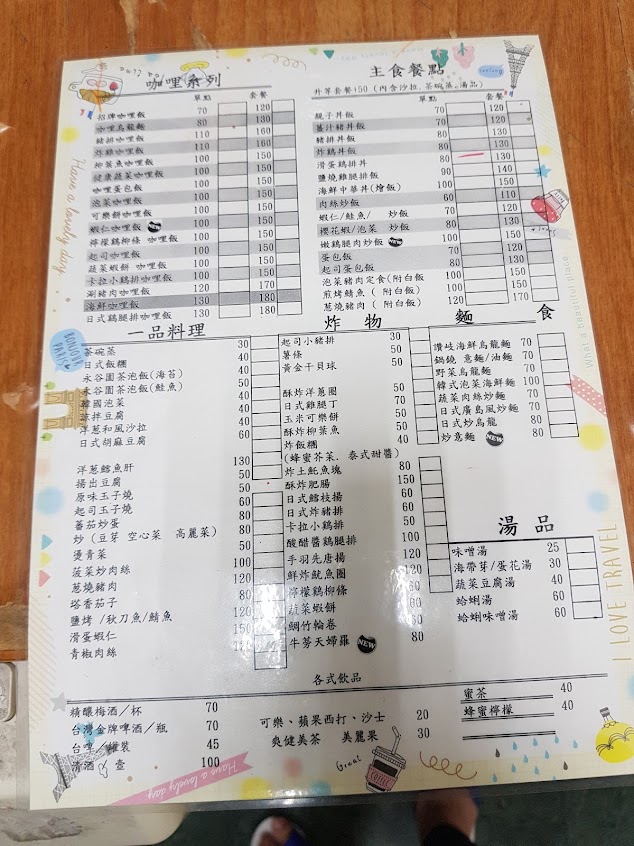 咖哩系列
單點 套餐
招牌咖哩飯 70 120
咖哩烏龍麵 80 130
豬排咖哩飯 110 160
炸雞咖哩飯 110 160
柳葉魚咖哩飯 100 150
健康蔬菜咖哩飯 100 150
咖哩蛋包飯 100 150
泡菜咖哩飯 100 150
可樂餅咖哩飯 100 150
蝦仁咖哩飯 NEW 100 150
檸檬鷄柳條 咖哩飯 100 150
起司咖哩飯 100 150
蔬菜蝦餅 咖哩飯 100 150
卡拉小鷄排咖哩飯 100 150
涮豬肉咖哩飯 100 150
海鮮咖哩飯 130 180
日式鷄腿排咖哩飯 130 180
主食餐點
升等套餐+50 (內含沙拉.茶碗蒸.湯品)
單點 套餐
親子丼飯 70 120
薑汁豬丼飯 80 130
豬排丼飯 80 130
炸鷄丼飯 80 130
滑蛋鷄排丼
鹽燒雞腿排飯
海鮮中華丼(燴飯)
肉絲炒飯 60 110
蝦仁/鮭魚/ 炒飯
櫻花蝦/泡菜 炒飯 80 130
嫩鷄腿肉炒飯 NEW
蛋包飯
起司蛋包飯
泡菜豬肉定食(附白飯
煎烤鯖魚( 附白飯)
蔥燒豬肉( 附白飯) 120 170
一品料理
茶碗蒸 30
日式飯糰 40
永谷園茶泡飯(海苔) 50
永谷園茶泡飯(鮭魚)
韓國泡菜
涼拌豆腐
洋蔥和風沙拉
日式胡麻豆腐
洋蔥鱈魚肝 130
揚出豆腐 50
原味玉子燒 60
起司玉子燒 80
蕃茄炒蛋
炒 (豆芽 空心菜 高麗菜)
燙青菜
菠菜炒肉絲
蔥燒豬肉
塔香茄子
鹽烤 /秋刀魚/鯖魚
滑蛋蝦仁
青椒肉絲
炸物
起司小豬排 30
薯條
黃金干貝球
酥炸洋蔥圈 50
日式雞腿丁 50
玉米可樂餅 50
酥炸柳葉魚 50
炸飯糰 40
(蜂蜜芥茉.泰式甜醬)
炸土魠魚塊 80
酥炸肥腸 150
日式鱈枝揚 60
日式炸豬排 80
卡拉小鷄排 50
酸醋醬鷄腿排 120
手羽先唐揚
鮮炸魷魚圈
檸檬鷄柳條
蔬菜蝦餅
鯛竹輪卷
牛蒡天婦羅 NEW 80
麵食
讚岐海鮮烏龍麵 50
鍋燒 意麵/油麵 70
野菜烏龍麵 70
韓式泡菜海鮮麵 100
蔬菜肉絲炒麵 70
日式廣島風炒麵 70
日式炒烏龍 80
炒意麵 NEW 50
湯品
味噌湯 25
海帶芽/蛋花湯 30
蔬菜豆腐湯 40
蛤蜊湯 60
蛤蜊味噌湯 60
各式飲品
精釀梅酒/杯 70
台灣金牌啤酒/瓶 70
台啤/罐裝 45
清酒 / 壺 100
可樂、蘋果西打、沙士 20
爽健美茶 美麗果 30
蜜茶 40
蜂蜜檸檬 40
Have a lovely day
BONJOUR PARIS
What a beautiful place
I LOVE TRAVEL
Have a lovely day
Great